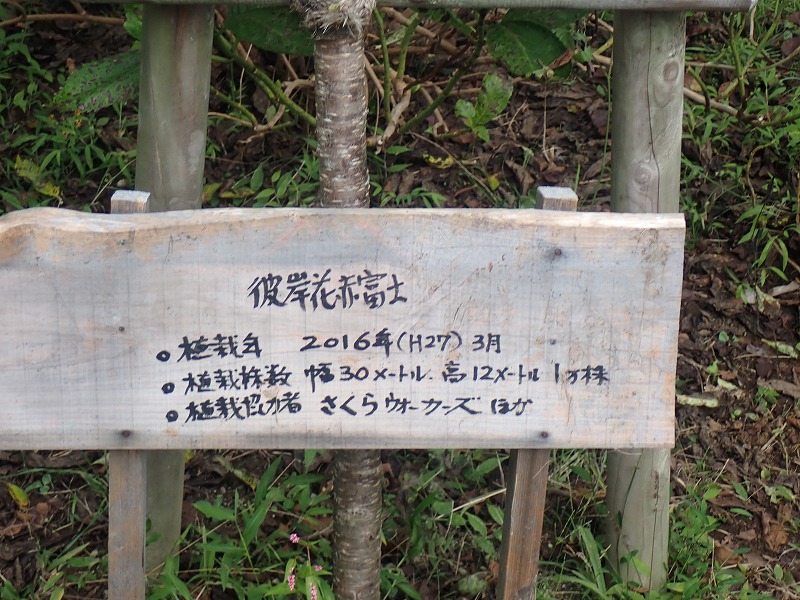 彼岸花赤富士
植栽年 2016年(H27) 3月
植栽株数 幅30メートル、高12メートル 1万株
植栽協力者 さくらウォーカーズ ほか